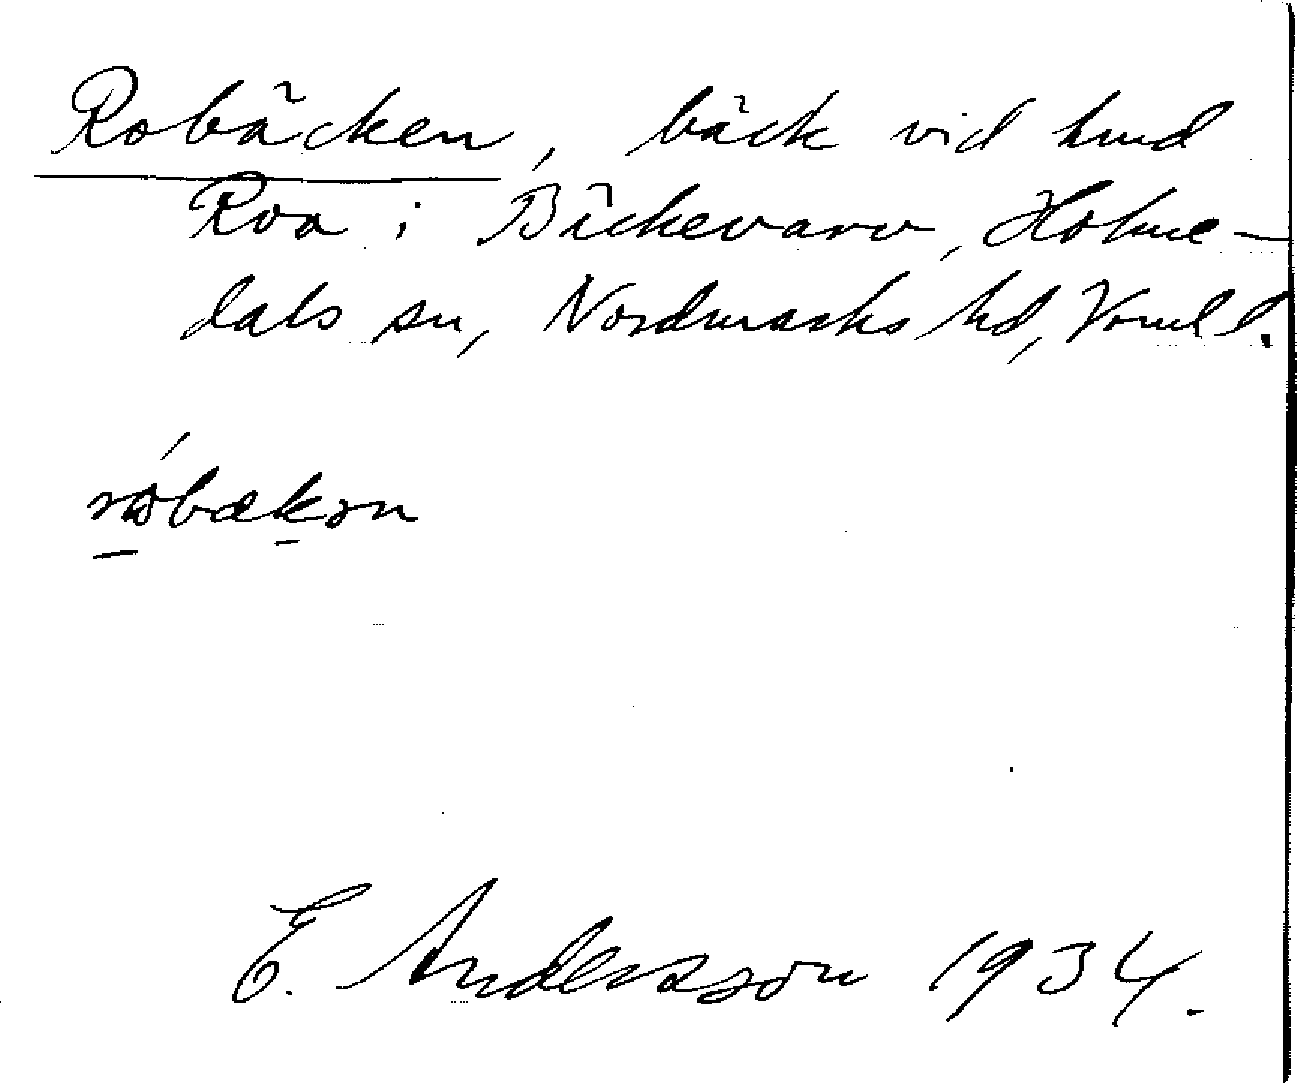 Robäcken, bäck vid hmd
Roa i Bäckevarv, Holme-
dals sn, Nordmarks hd, Vrml.
róbækən
E. Andersson 1934.